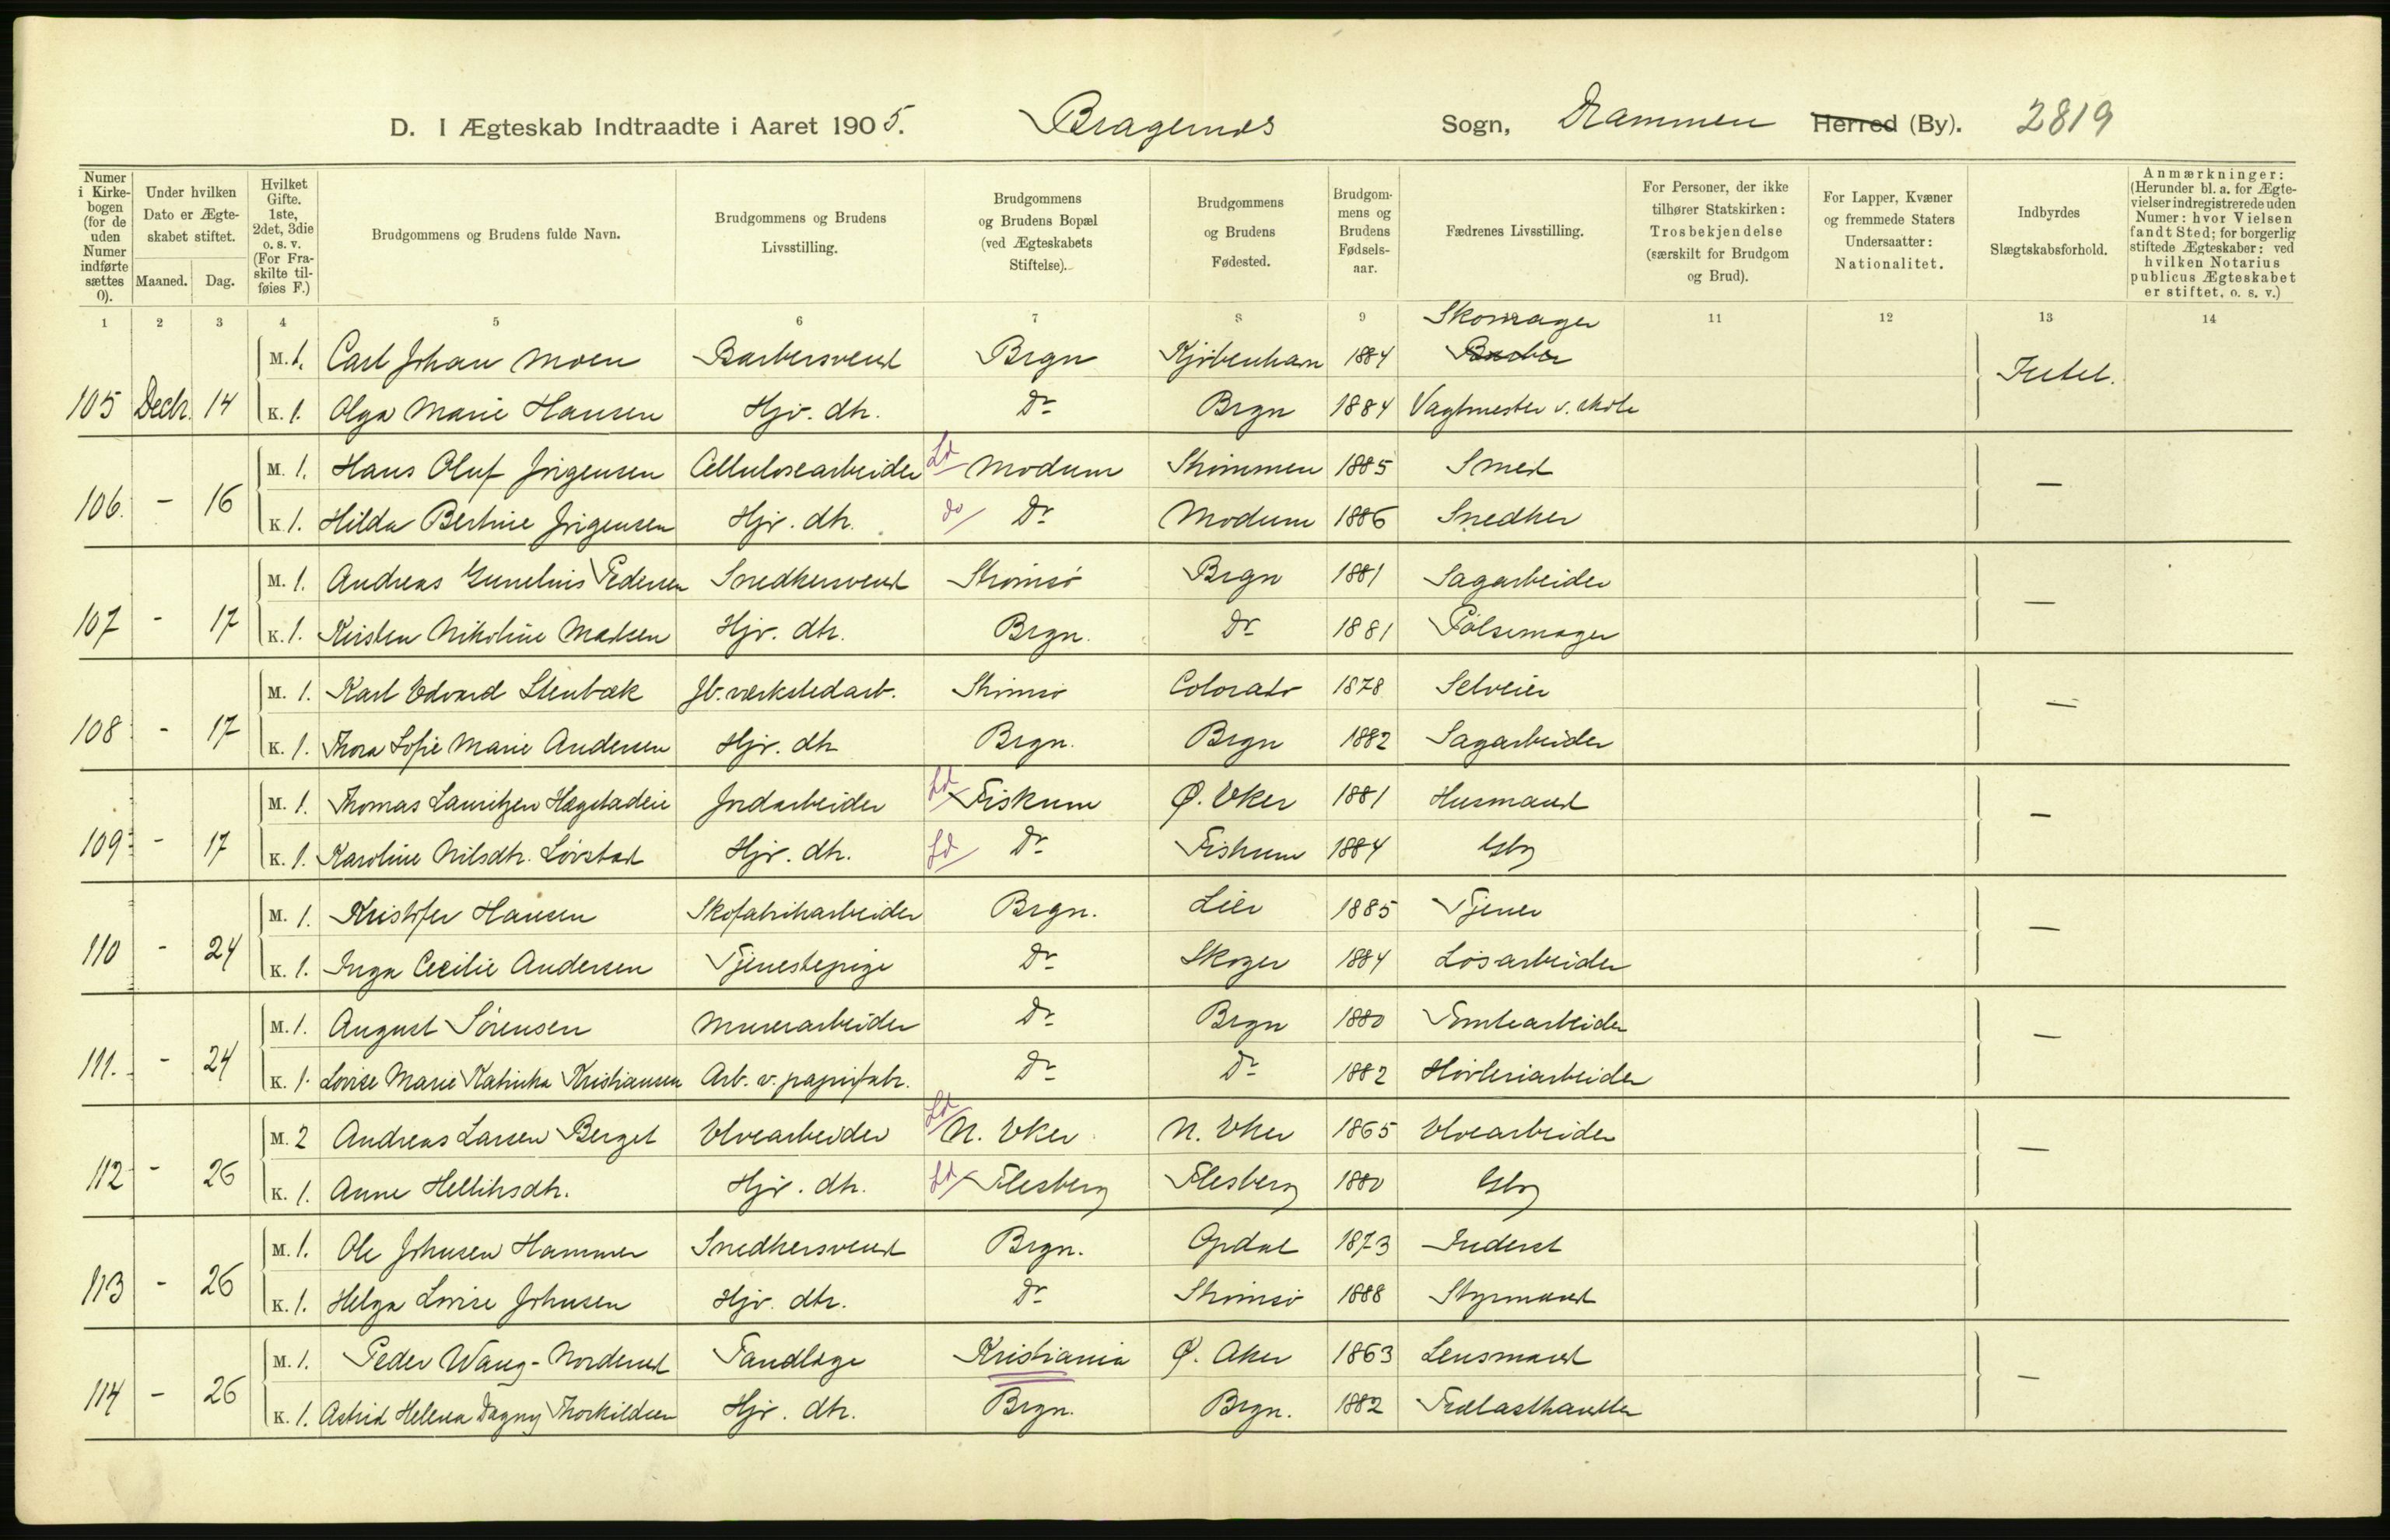 D. I Ægteskab Indtraadte i Aaret 1905. Bragernes Sogn, Drammen Herred (By). 2819
Numer i Kirkebogen (for de uden Numer indførte sættes 0).
Under hvilken Dato er Ægteskabet stiftet.
Maaned. Dag.
Hvilket Gifte. 1ste, 2det, 3die o. s. v. (For Fraskilte tilføies F.)
Brudgommens og Brudens fulde Navn.
Brudgommens og Brudens Livsstilling.
Brudgommens og Brudens Bopæl (ved Ægteskabets Stiftelse).
Brudgommens og Brudens Fødested.
Brudgommens og Brudens Fødselsaar.
Fædrenes Livsstilling.
For Personer, der ikke tilhører Statskirken: Trosbekjendelse (særskilt for Brudgom og Brud).
For Lapper, Kvæner og fremmede Staters Undersaatter: Nationalitet.
Indbyrdes Slægtskabsforhold.
Anmærkninger: (Herunder bl. a. for Ægtevielser indregistrerede uden Numer: hvor Vielsen fandt Sted; for borgerlig stiftede Ægteskaber: ved hvilken Notarius publicus Ægteskabet er stiftet, o. s. v.)
1 2 3 4 5 6 7 8 9 11 12 13 14
Skomager
M. 1. Carl Johan Moen Barbersvend Brgn Kjøbenhavn 1884 Barber Intet.
105 Decbr. 14 K. 1. Olga Marie Hansen Hjv. dtr. Do Brgn 1884 Vagtmester v.
M. 1. Hans Oluf Jørgensen Cellulosearbeider Ld Modum Strømmen 1885 Smed —
106. - 16 K. 1. Hilda Bertine Jørgensen Hjv. dtr. do Do Modum 1886 Snedker
M. 1. Andreas Gunelius Pedersen Snedkersvend Strømsø Brgn 1881 Sagarbeider —
107 - 17 K. 1. Kirsten Nikoline Madsen Hjv. dtr. Brgn. Do 1881 Pølsemager
M. 1. Karl Edvard Stenbæk Jb. værkstedarb. Strømsø Colorado 1878 Selveier —
108 - 17 K. 1. Thora Sofie Marie Andersen Hjv. dtr Brgn. Brgn 1882 Sagarbeider
M. 1. Thomas Lauritzen Hægstadeie Jordarbeider Ld Fiskum Ø. Eker 1881 Husmand —
109 - 17 K. 1. Karoline Nilsdtr. Lovstad Hjv. dtr. Ld Do Fiskum 1884 Gbr
M. 1. Kristofer Hansen Skofabrikarbeider Brgn. Lier 1885 Tjener —
110 - 24 K. 1. Inga Cecilie Andersen Tjenestepige Do Skoger 1884 Løsarbeider
M. 1. August Sørensen Murerarbeider Do Brgn 1880 Tomtearbeider —
111. - 24 K. 1. Lovise Marie Katinka Kristiansen Arb. v. papirfabr. Do Do 1882 Høvleriarbeider
M. 2 Andreas Larsen Berget Elvearbeider Ld N. Eker N. Eker 1865 Elvearbeider —
112 - 26 K. 1. Anne Helliksdtr. Hjv. dtr. Ld Flesberg Flesberg 1880 Gbr
M. 1. Ole Johnsen Hammer Snedkersvend Brgn. Opdal 1873 Inderst
113 - 26 K. 1. Helga Lovise Johnsen Hjv. dtr. Do Strømsø 1888 Styrmand
M. 1. Peder Wang-Norderud Tandlæge Kristiania Ø. Aker 1863 Lensmand —
114 - 26 K. 1. Astrid Helena Dagny Thorkildsen Hjv. dtr. Brgn. Brgn. 1882 Trælasthandler